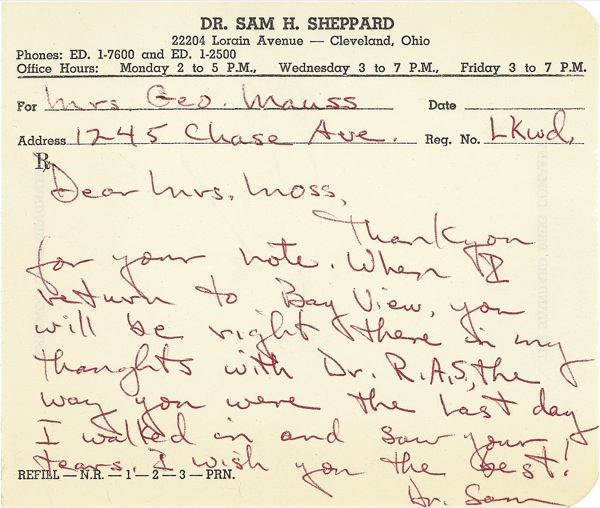 DR. SAM H. SHEPPARD
22204 Lorain Avenue — Cleveland, Ohio
Phones: ED. 1-7600 and ED. 1-2500
Office Hours: Monday 2 to 5 P.M., Wednesday 3 to 7 P.M., Friday 3 to 7 P.M.
For Mrs. Geo. Mauss Date
Address 1245 Chase Ave. Reg. No. LKwd.
℞
Dear Mrs. Moss,
Thank you
for your note. When I
return to Bay View, you
will be right there in my
thoughts with Dr. R.A.S, the
way you were the last day
I walked in and saw your
tears. I wish you the best!
REFILL — N.R. — 1 — 2 — 3 — PRN.
Dr. Sam